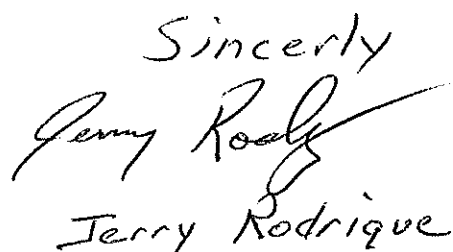 Sincerly
Jerry Rodz
Jerry Rodrique